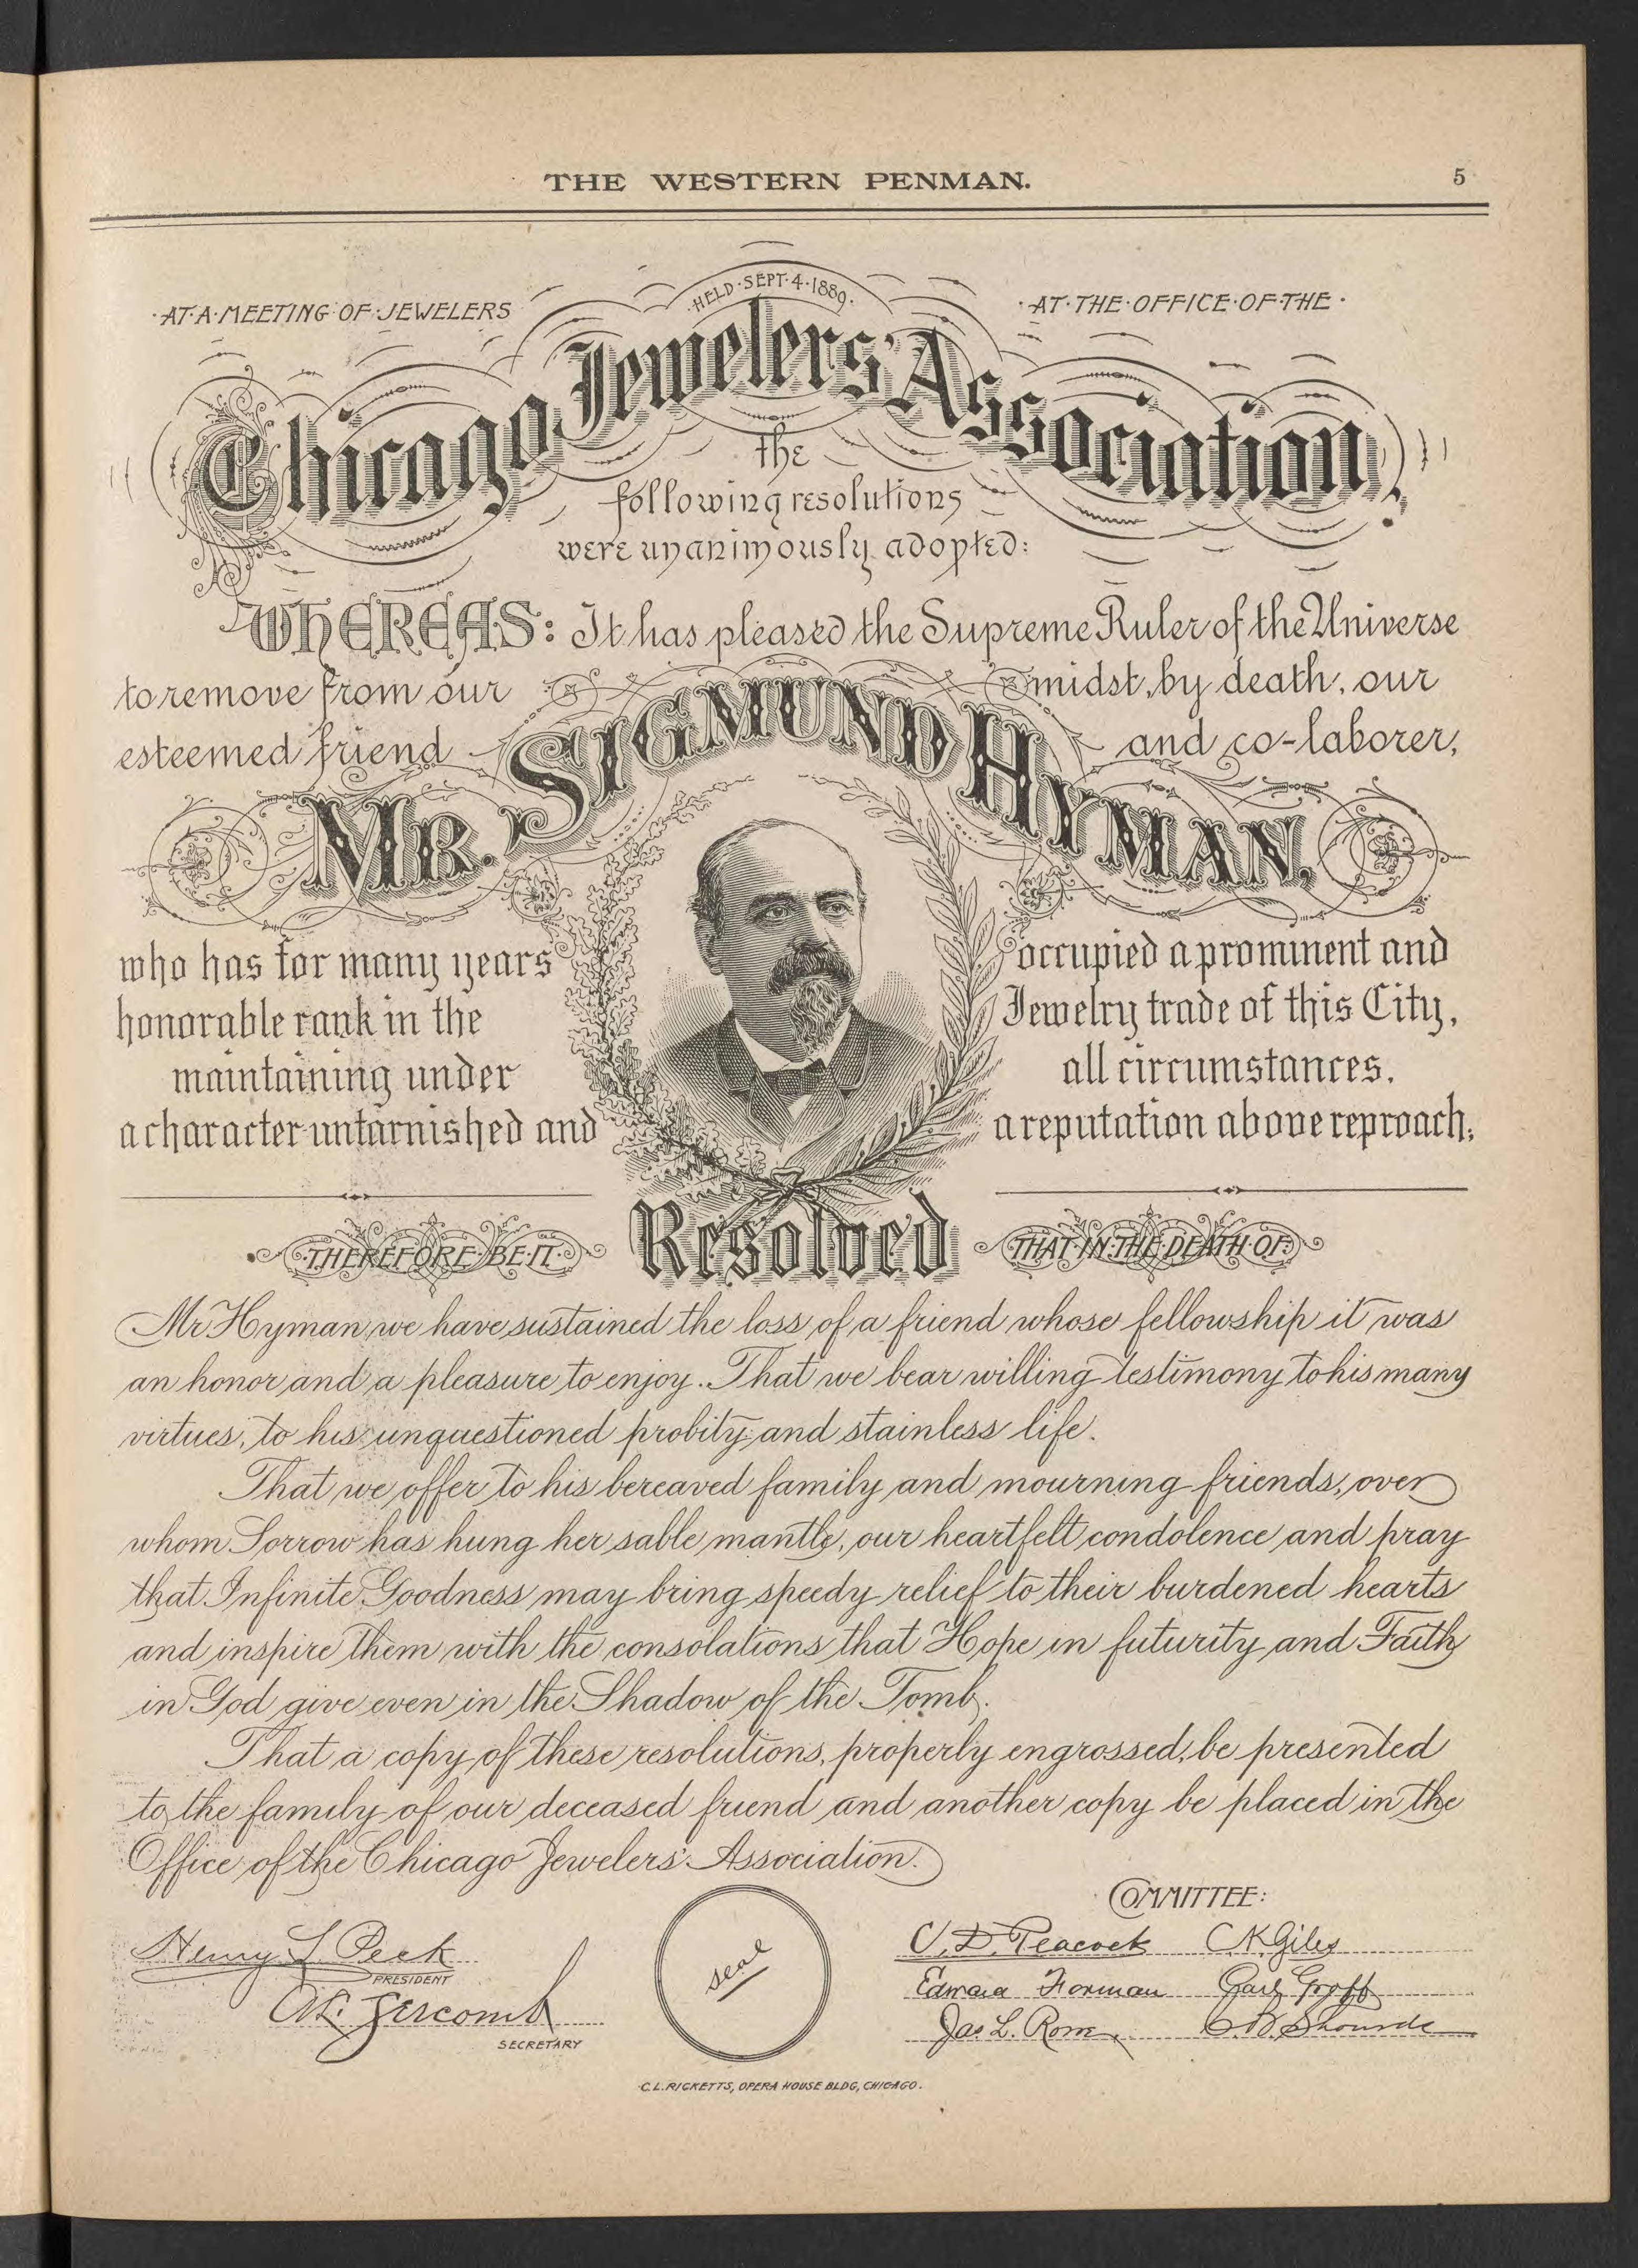 THE WESTERN PENMAN.
5
AT A MEETING OF JEWELERS
HELD SEPT. 4. 1889.
AT THE OFFICE OF THE
Chicago Jewelers' Association,
the
following resolutions
were unanimously adopted:
WHEREAS: It has pleased the Supreme Ruler of the Universe
to remove from our midst, by death, our
esteemed friend and co-laborer,
MR. SIGMUND HYMAN,
who has for many years occupied a prominent and
honorable rank in the Jewelry trade of this City,
maintaining under all circumstances,
a character untarnished and a reputation above reproach;
THEREFORE BE IT Resolved THAT IN THE DEATH OF
Mr Hyman we have sustained the loss of a friend whose fellowship it was
an honor and a pleasure to enjoy. That we bear willing testimony to his many
virtues, to his unquestioned probity and stainless life.
That we offer to his bereaved family and mourning friends, over
whom Sorrow has hung her sable mantle, our heartfelt condolence and pray
that Infinite Goodness may bring speedy relief to their burdened hearts
and inspire them with the consolations that Hope in futurity and Faith
in God give even in the Shadow of the Tomb.
That a copy of these resolutions, properly engrossed, be presented
to the family of our deceased friend and another copy be placed in the
Office of the Chicago Jewelers' Association.
COMMITTEE:
Henry L. Peck
PRESIDENT
SECRETARY
seal
C. D. Peacock C. K. Giles
Edward Forman Carl Groff
Jas L. Rome
C.L. RICKETTS, OPERA HOUSE BLDG, CHICAGO.